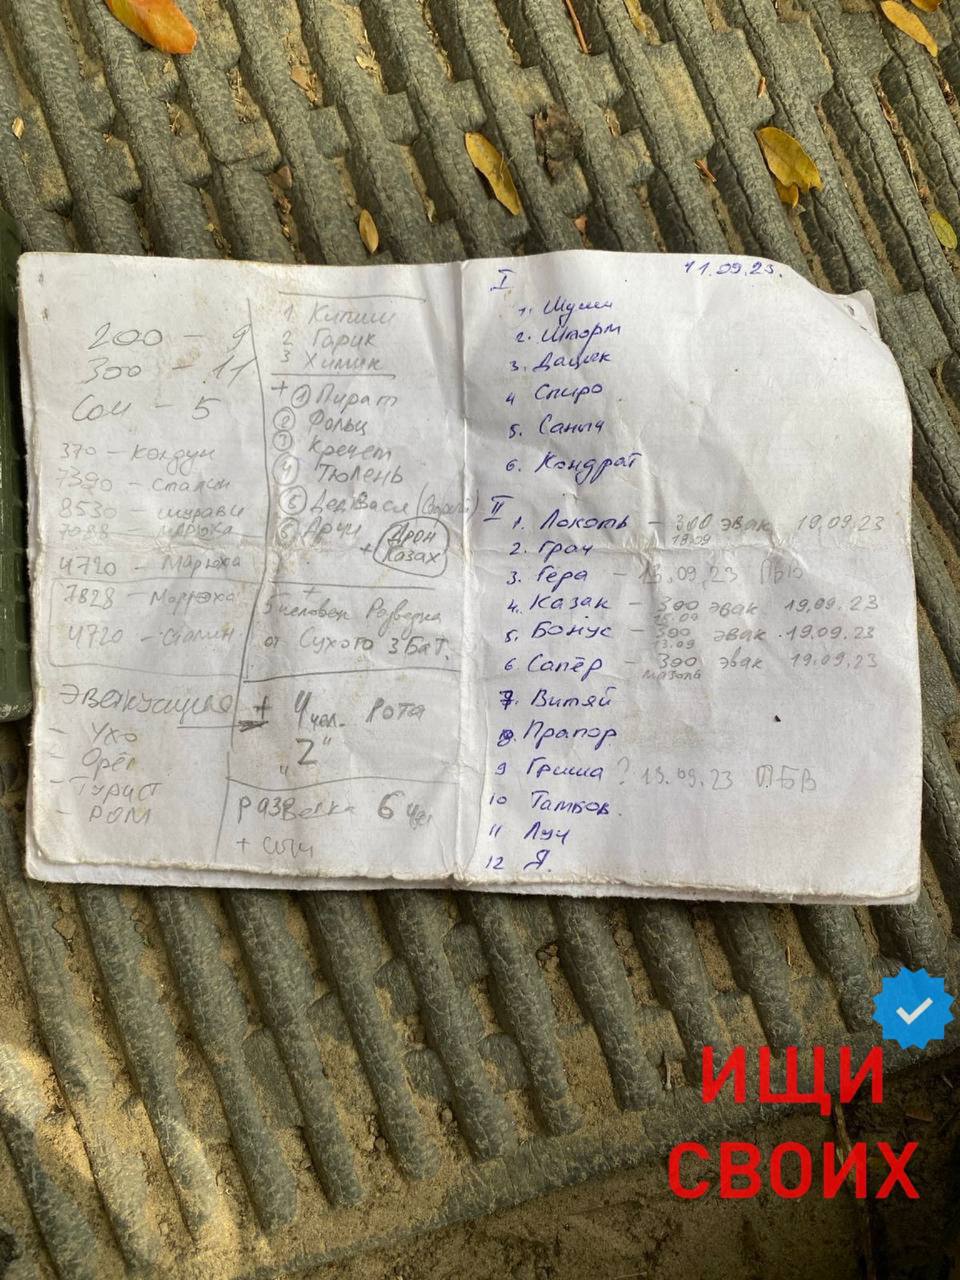 200 - 9
300 - 11
Сом - 5
370 - Колдун
7390 - Сталин
8530 - шурави
7088 - Марюха
4720 - Марюха
7828 - Марюха
4720 - Сталин
Эвакуация
- Ухо
- Орёл
- Турист
- РОМ
1. Кипиш
2 Гарик
3 Химик
+ 1 Пират
2 Фольц
3 Кречет
4 Тюлень
5 Дед Вася
6 Арчи
+ Дрон
Казах
+
5 человек Разведка
от Сухого 3 Бат.
+ 4 чел. Рота
"2"
разведка 6 чел
11.09.23.
I
1. Шуми
2. Шторм
3. Дацик
4 Спиро
5. Саныч
6. Кондрат
II
1. Локоть - 300 эвак 19.09.23
19.09
2. Грач
3. Гера - 13.09.23 ПБВ
4. Казак - 300 эвак 19.09.23
15.09
5. Бонус - 300 эвак 19.09.23
13.09
6 Сапёр - 300 эвак 19.09.23
7. Витяй
8. Прапор
9 Гриша ? 13.09.23 ПБВ
10 Тамбов.
11 Луч
12 Я.
ИЩИ
СВОИХ